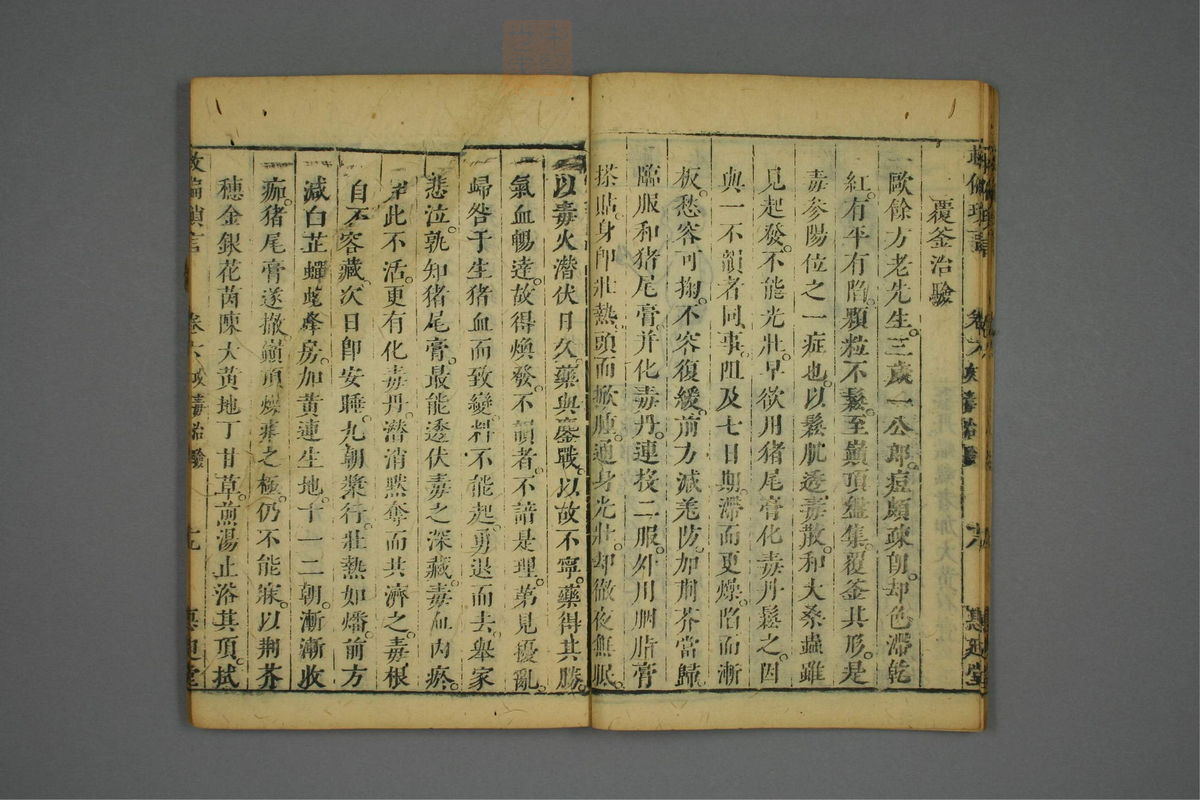 覆釜治驗
歐餘方老先生。三歲一公郎。痘頗疎朗。却色滯乾
紅。有平有陷。顆粒不鬆。至巔頂盤集。覆釜其形。是
毒參陽位之一症也。以鬆肌透毒散。和大桑蟲雖
見起發。不能光壯。早欲用猪尾膏化毒丹鬆之。因
與一不韻者同事。阻及七日期。滯而更燥。陷而漸
板。愁容可掬。不容復緩。前方減羌防。加荊芥當歸
臨服和猪尾膏。并化毒丹。連投二服。外用胭脂膏
搽貼。身卽壯熱。頭面掀腫。通身光壯。却徹夜無眠。
以毒火潛伏日久。藥與鏖戰。以故不寧。藥得其勝。
氣血暢達。故得煥發。不韻者。不諳是理。第見擾亂
歸咎于生猪血而致變。料不能起。勇退而去。舉家
悲泣。孰知猪尾膏。最能透伏毒之深藏。毒血內瘀。
非此不活。更有化毒丹。潛消黙奪而共濟之。毒根
自不容藏。次日卽安睡。九朝漿行。壯熱如燔。前方
減白芷蟬蛻蜂房。加黃連生地。十一二朝。漸漸收
痂。猪尾膏遂撤。巔頂燥痒之極。仍不能寐。以荆芥
穗金銀花茵陳大黃地丁甘草。煎湯止浴其頂。拭
救偏瑣言
卷六
十九
惠迪堂